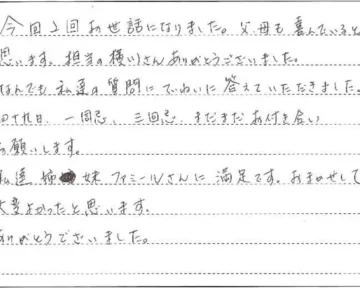 今回2回お世話になりました。父母も喜んでいると
思います。担当の横川さんありがとうございました。
なんでも私達の質問にていねいに答えていただきました。
四十九日、一周忌、三回忌、まだまだお付き合い
お願いします。
私達姉妹ファミールさんに満足です。おまかせして
大変よかったと思います。
ありがとうございました。